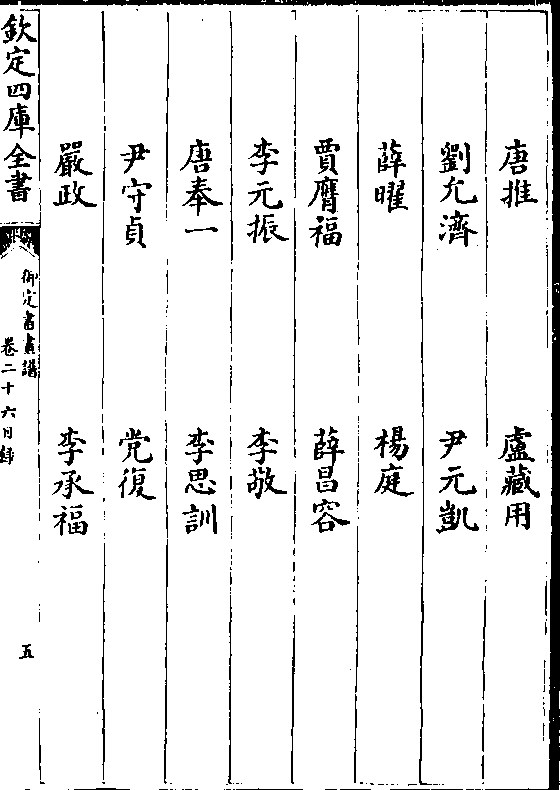 唐推 盧藏用
劉允濟 尹元凱
薛曜 楊庭
賈膺福 薛昌容
李元振 李敬
唐奉一 李思訓
尹守貞 党復
嚴政 李承福
欽定四庫全書
御定書畫譜
卷二十六目錄
五